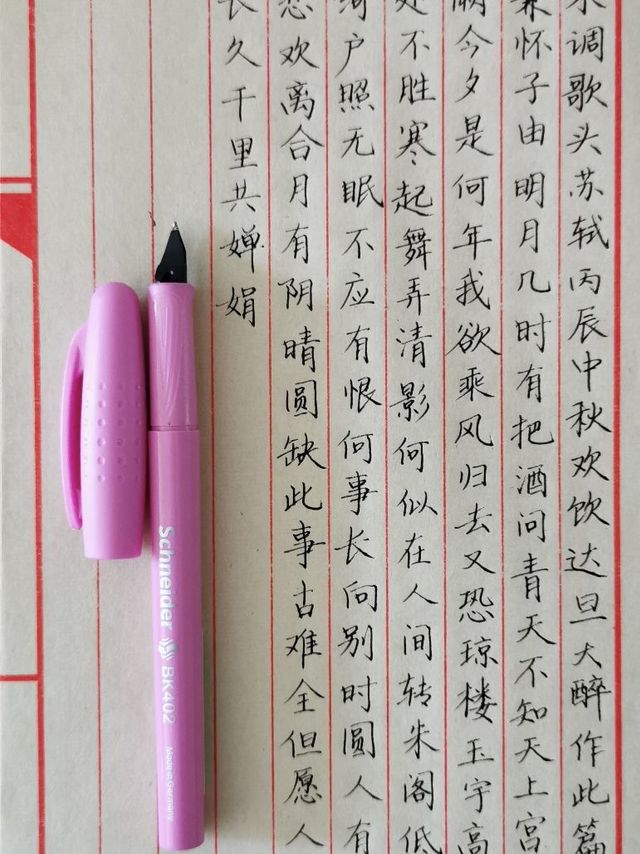 水调歌头苏轼丙辰中秋欢饮达旦大醉作此篇
兼怀子由明月几时有把酒问青天不知天上宫
阙今夕是何年我欲乘风归去又恐琼楼玉宇高
处不胜寒起舞弄清影何似在人间转朱阁低
绮户照无眠不应有恨何事长向别时圆人有
悲欢离合月有阴晴圆缺此事古难全但愿人
长久千里共婵娟
Schneider BK402 Made in Germany